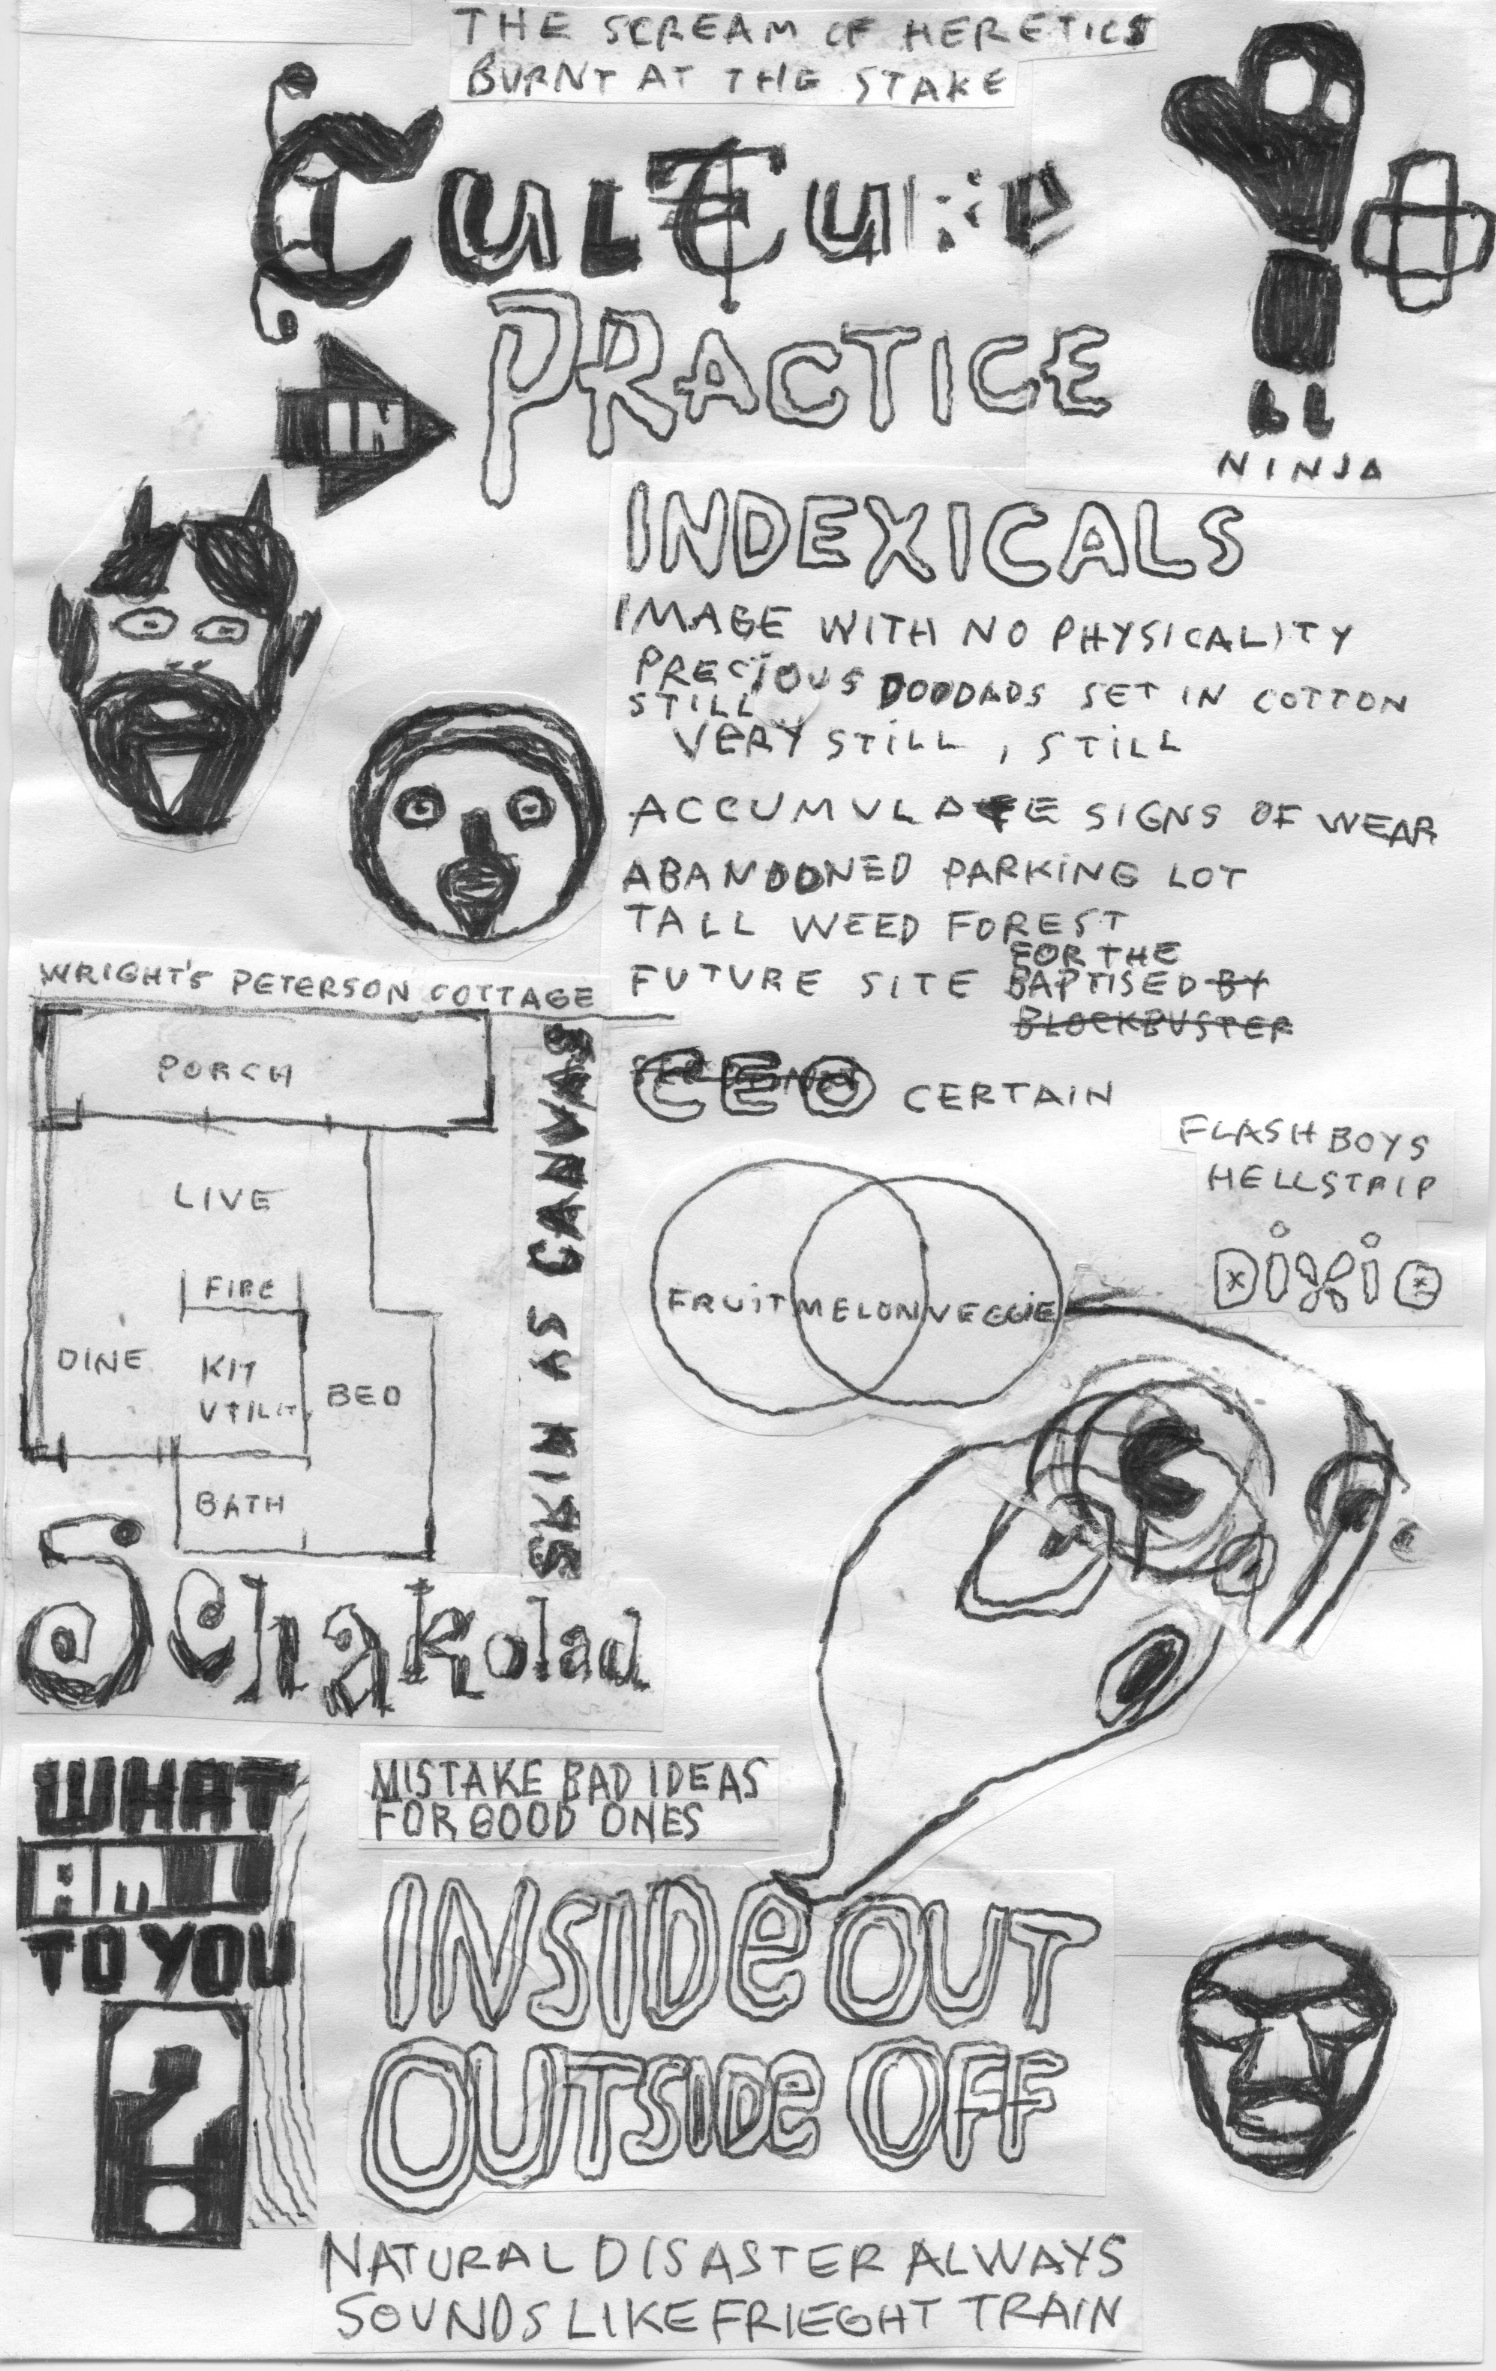 THE SCREAM OF HERETICS
BURNT AT THE STAKE
CULTURE
IN PRACTICE
NINJA
INDEXICALS
IMAGE WITH NO PHYSICALITY
PRECIOUS DOODADS SET IN COTTON
STILL
VERY STILL, STILL
ACCUMULATE SIGNS OF WEAR
ABANDONED PARKING LOT
TALL WEED FOREST
FOR THE
FUTURE SITE BAPTISED BY
BLOCKBUSTER
CEO CERTAIN
WRIGHT'S PETERSON COTTAGE
PORCH
LIVE
FIRE
DINE
KIT
UTILIT
BED
BATH
SKIN AS CANVAS
FLASH BOYS
HELLSTRIP
DIXIE
FRUIT MELON VEGGIE
Schakolad
WHAT
AM I
TO YOU
?
MISTAKE BAD IDEAS
FOR GOOD ONES
INSIDe OUT
OUTSIDe OFF
NATURAL DISASTER ALWAYS
SOUNDS LIKE FRIEGHT TRAIN